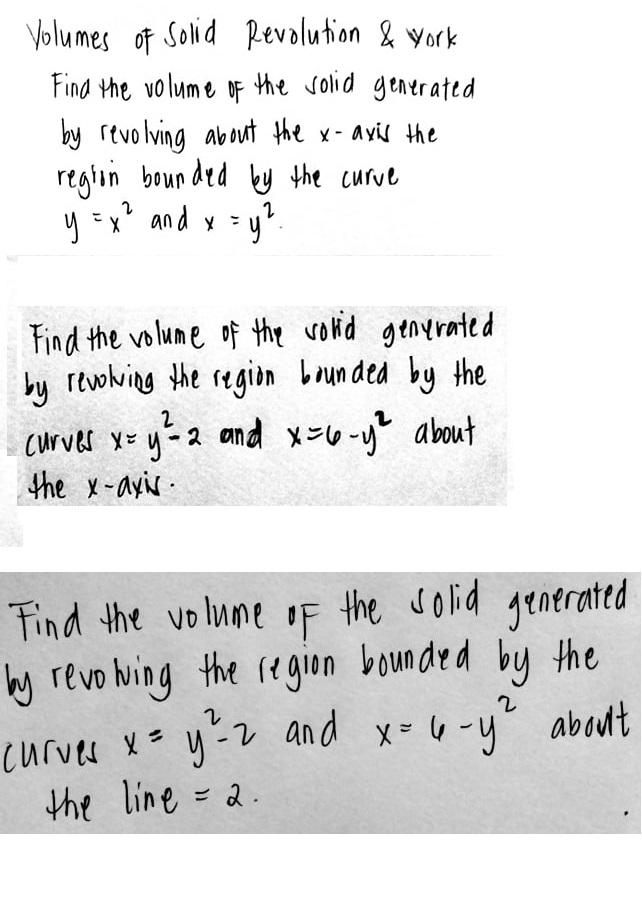 Volumes of Solid Revolution & Work
Find the volume of the solid generated
by revolving about the x-axis the
region bounded by the curve
y = x² and x = y².
Find the volume of the solid generated
by revolving the region bounded by the
curves x = y² - 2 and x = 6 - y² about
the x-axis.
Find the volume of the solid generated
by revolving the region bounded by the
curves x = y² - 2 and x = 6 - y² about
the line = 2.